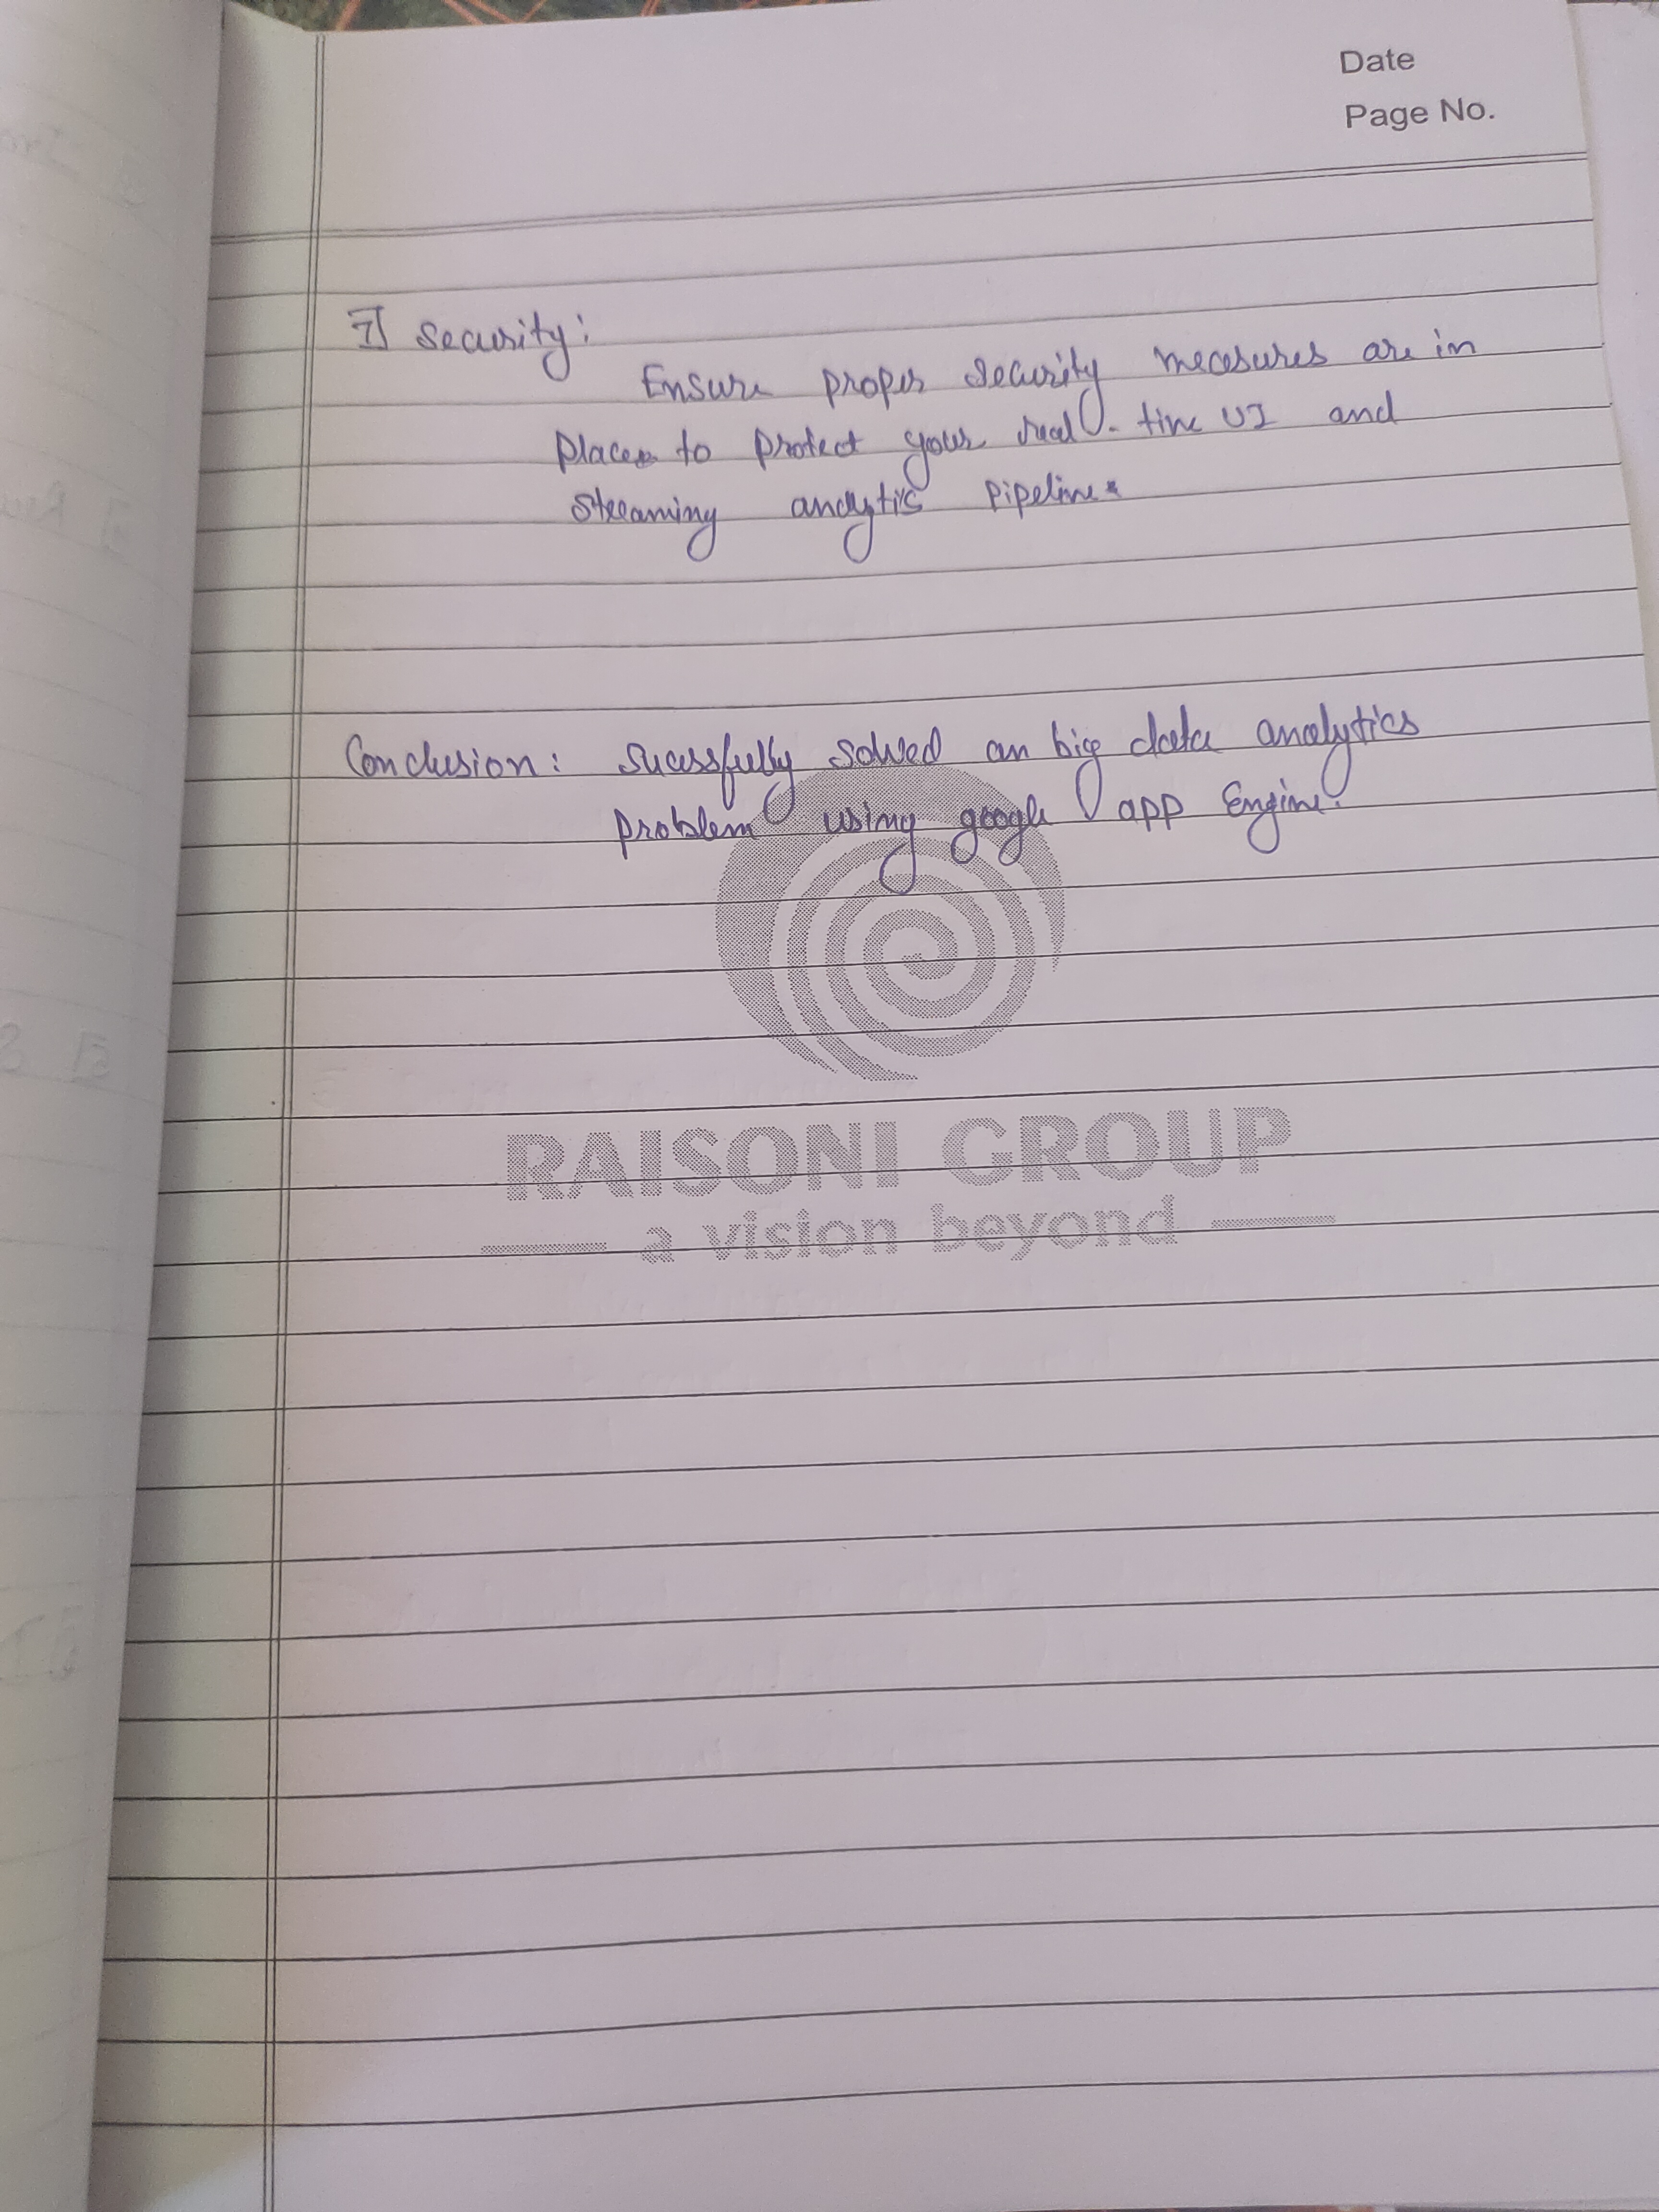 Date
Page No.
7] Security:
Ensure proper security measures are in
place to protect your real-time UI and
streaming analytic pipeline.
Conclusion: Sucessfully solved an big data analytics
problem using google app Engine.
RAISONI GROUP
a vision beyond